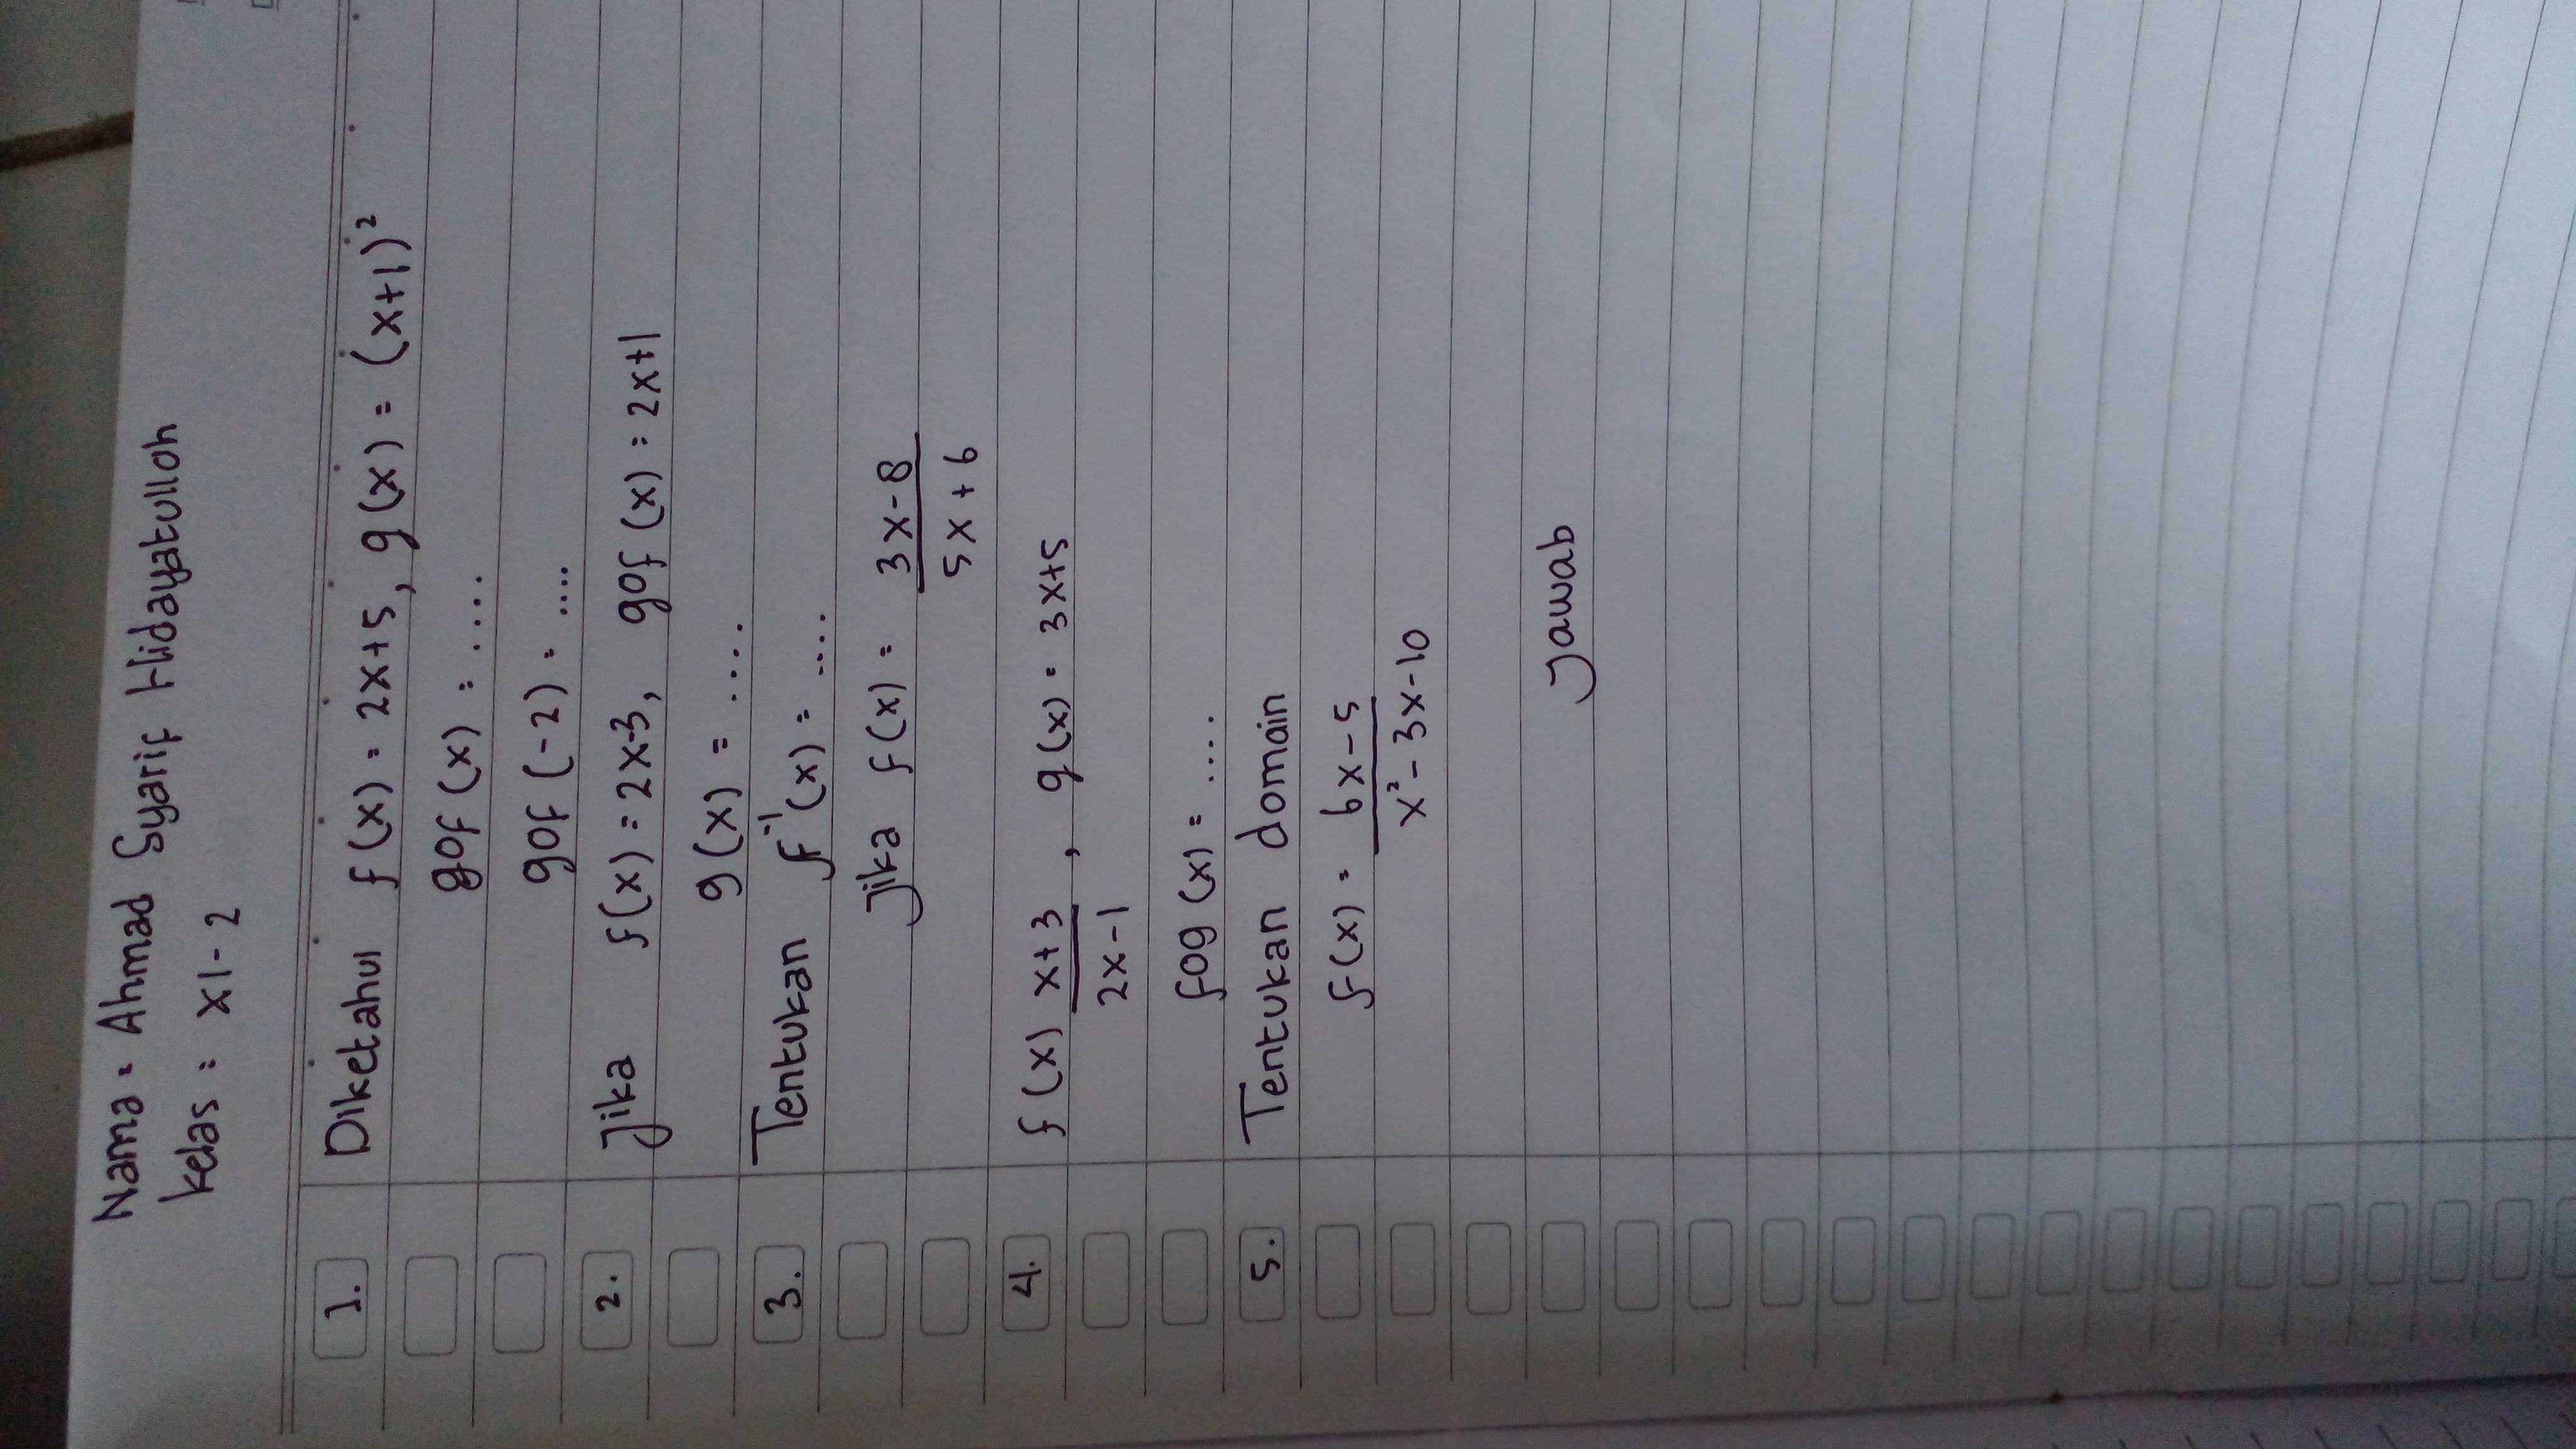 Nama = Ahmad Syarif Hidayatulloh
Kelas : XI-2
1. Diketahui f(x) = 2x+5, g(x) = (x+1)²
gof (x) = ....
gof (-2) = ....
2. Jika f(x) = 2x-3, gof (x) = 2x+1
g(x) = ....
3. Tentukan f⁻¹(x) = ....
Jika f(x) = 3x-8
5x+6
4. f(x) x+3, g(x) = 3x+5
2x-1
fog (x) = ....
5. Tentukan domain
f(x) = 6x-5
x²-3x-10
Jawab